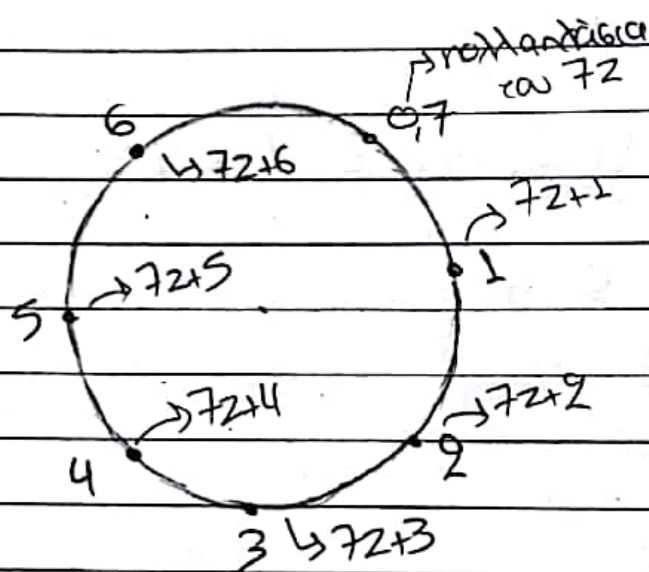 πολλαπλάσια
του 7Z
0,7
6
7Z+6
7Z+1
1
7Z+5
5
7Z+4
7Z+2
4
2
3 7Z+3